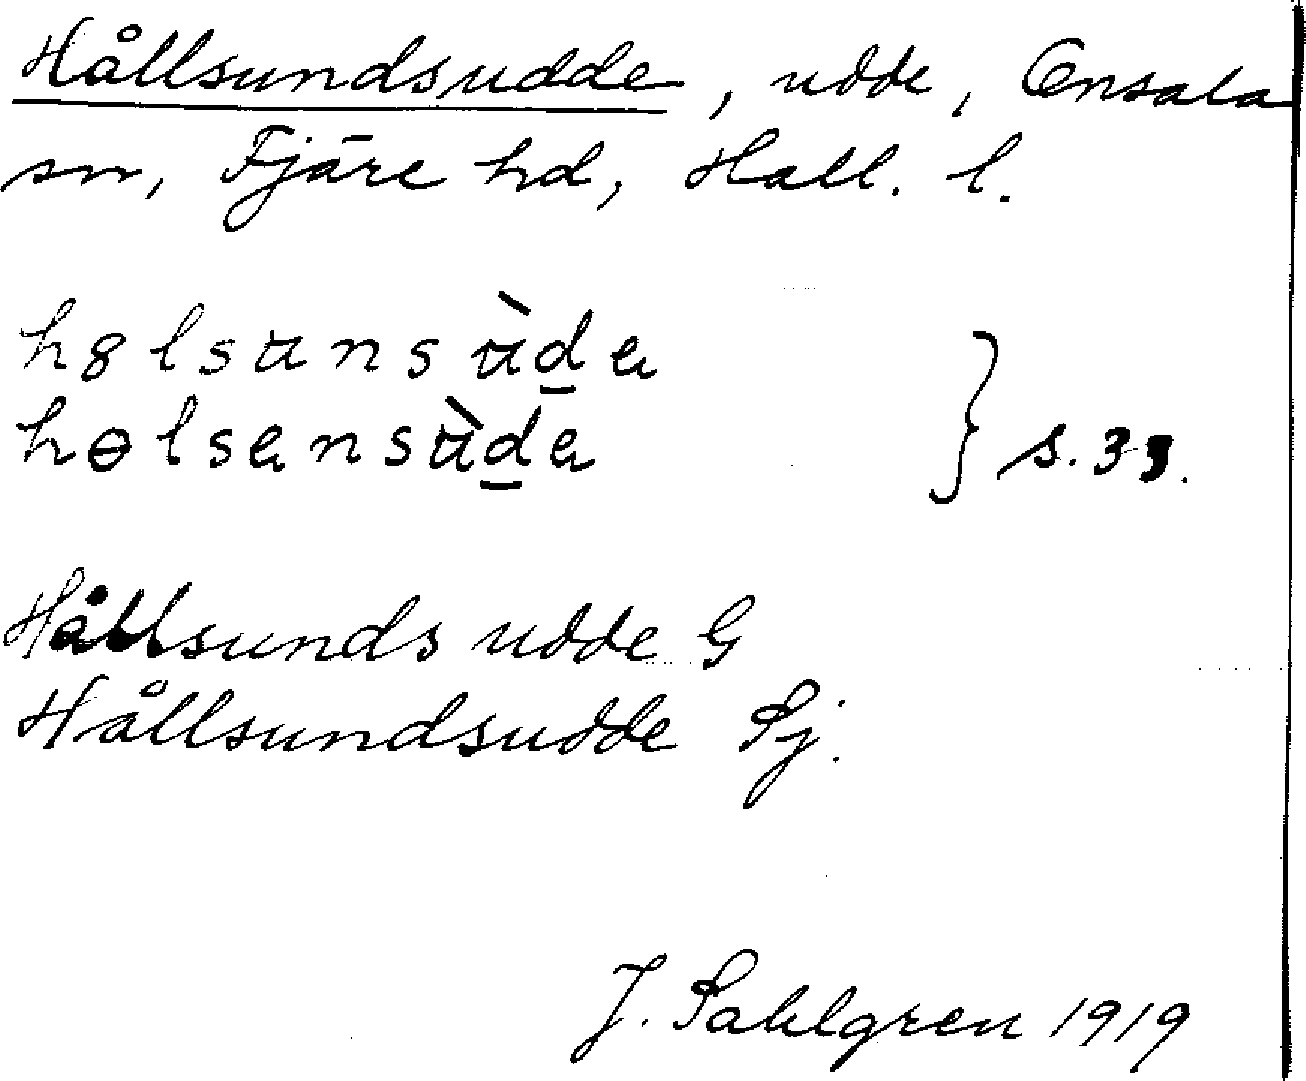 Hållsundsudde, udde, Onsala
sn, Fjäre hd, Hall. l.
h8lsunsùde
hɵlsensùde } s. 33.
Hållsunds udde G
Hållsundsudde Sj.
J. Sahlgren 1919